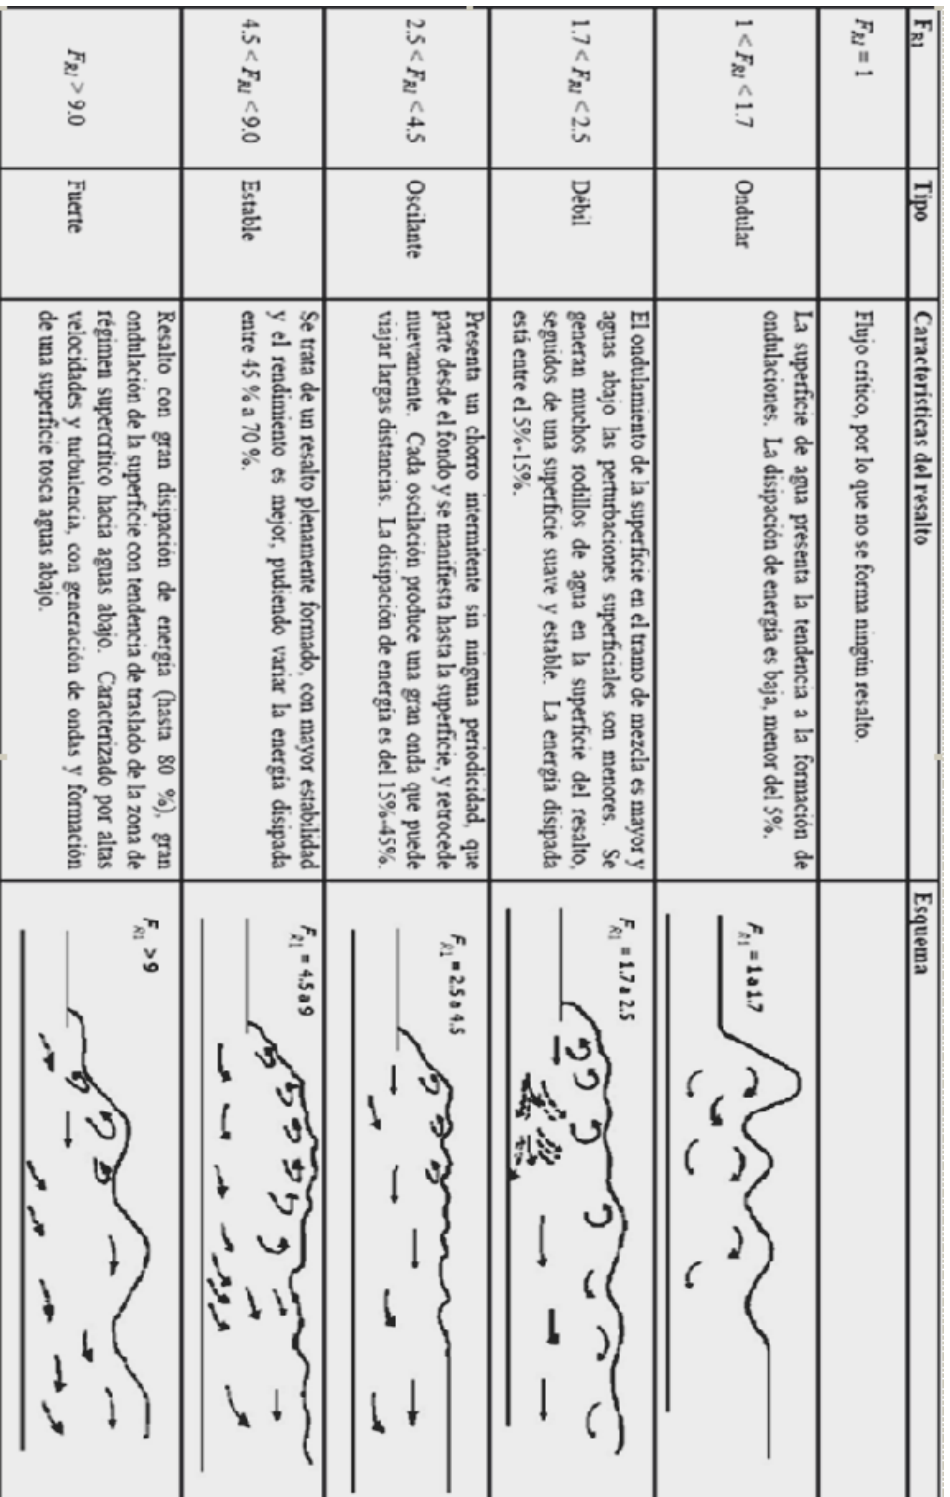 F_R1 Tipo Características del resalto Esquema
F_R1 = 1
Flujo crítico, por lo que no se forma ningún resalto.
1 < F_R1 < 1.7
Ondular
La superficie de agua presenta la tendencia a la formación de
ondulaciones. La disipación de energía es baja, menor del 5%.
F_R1 = 1 a 1.7
1.7 < F_R1 < 2.5
Débil
El ondulamiento de la superficie en el tramo de mezcla es mayor y
aguas abajo las perturbaciones superficiales son menores. Se
generan muchos rodillos de agua en la superficie del resalto,
seguidos de una superficie suave y estable. La energía disipada
está entre el 5%-15%.
F_R1 = 1.7 a 2.5
2.5 < F_R1 < 4.5
Oscilante
Presenta un chorro intermitente sin ninguna periodicidad, que
parte desde el fondo y se manifiesta hasta la superficie, y retrocede
nuevamente. Cada oscilación produce una gran onda que puede
viajar largas distancias. La disipación de energía es del 15%-45%.
F_R1 = 2.5 a 4.5
4.5 < F_R1 < 9.0
Estable
Se trata de un resalto plenamente formado, con mayor estabilidad
y el rendimiento es mejor, pudiendo variar la energía disipada
entre 45 % a 70 %.
F_R1 = 4.5 a 9
F_R1 > 9.0
Fuerte
Resalto con gran disipación de energía (hasta 80 %), gran
ondulación de la superficie con tendencia de traslado de la zona de
régimen supercrítico hacia aguas abajo. Caracterizado por altas
velocidades y turbulencia, con generación de ondas y formación
de una superficie tosca aguas abajo.
F_R1 > 9